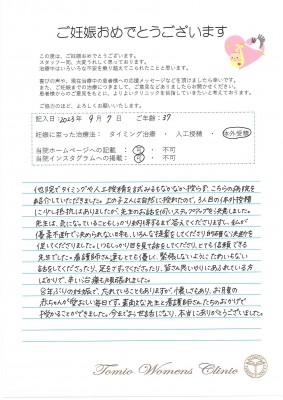 ご妊娠おめでとうございます
この度は、ご妊娠おめでとうございます。
スタッフ一同、大変うれしく思っております。
治療中はいろいろな不安を乗り越えてこられたことと思います。
喜びの声や、現在治療中の患者様への応援メッセージなどを頂けましたら幸いです。
また、ご妊娠までの治療につきまして、ご意見などありましたらお聞かせください。
患者様からのご意見をもとに、よりよいクリニックを目指していきたいと考えております。
ご協力のほど、よろしくお願いいたします。
記入日:2023年 9月 7日 ご年齢:37
妊娠に至った治療法: タイミング治療 ・ 人工授精 ・ 体外受精
当院ホームページへの記載: 可 ・ 不可
当院インスタグラムへの掲載: 可 ・ 不可
他院でタイミングや人工授精を試みるもなかなか授からず、こちらの病院を
紹介していただきました。上の子2人は自然に授かれたので、3人目の体外授精
に少し抵抗はありましたが、先生のお話を伺いステップアップを決意しました。
先生は、気になっていることもしっかり納得するまで答えてくださりますし、私が
優柔不断で決められない日も、いろんな提案をしてくださり的確な決断を
促してくださりました。いつもしっかり目を見て話をしてくださり、とても信頼できる
先生でした。看護師さん達もとても優しく、緊張しないようにたわいもない
話をしてくださったり、足をさすってくださったり、皆さん思いやりにあふれている方
ばかりで、辛い治療も頑張れました。
8年ぶりの妊娠で、忘れていることもありますが、懐しさもあり、お腹の
赤ちゃんが愛おしい毎日です。富山先生と看護師さんたちのおかげで
授かることができました。今までお世話になり、本当にありがとうございました。
Tomio Womens Clinic